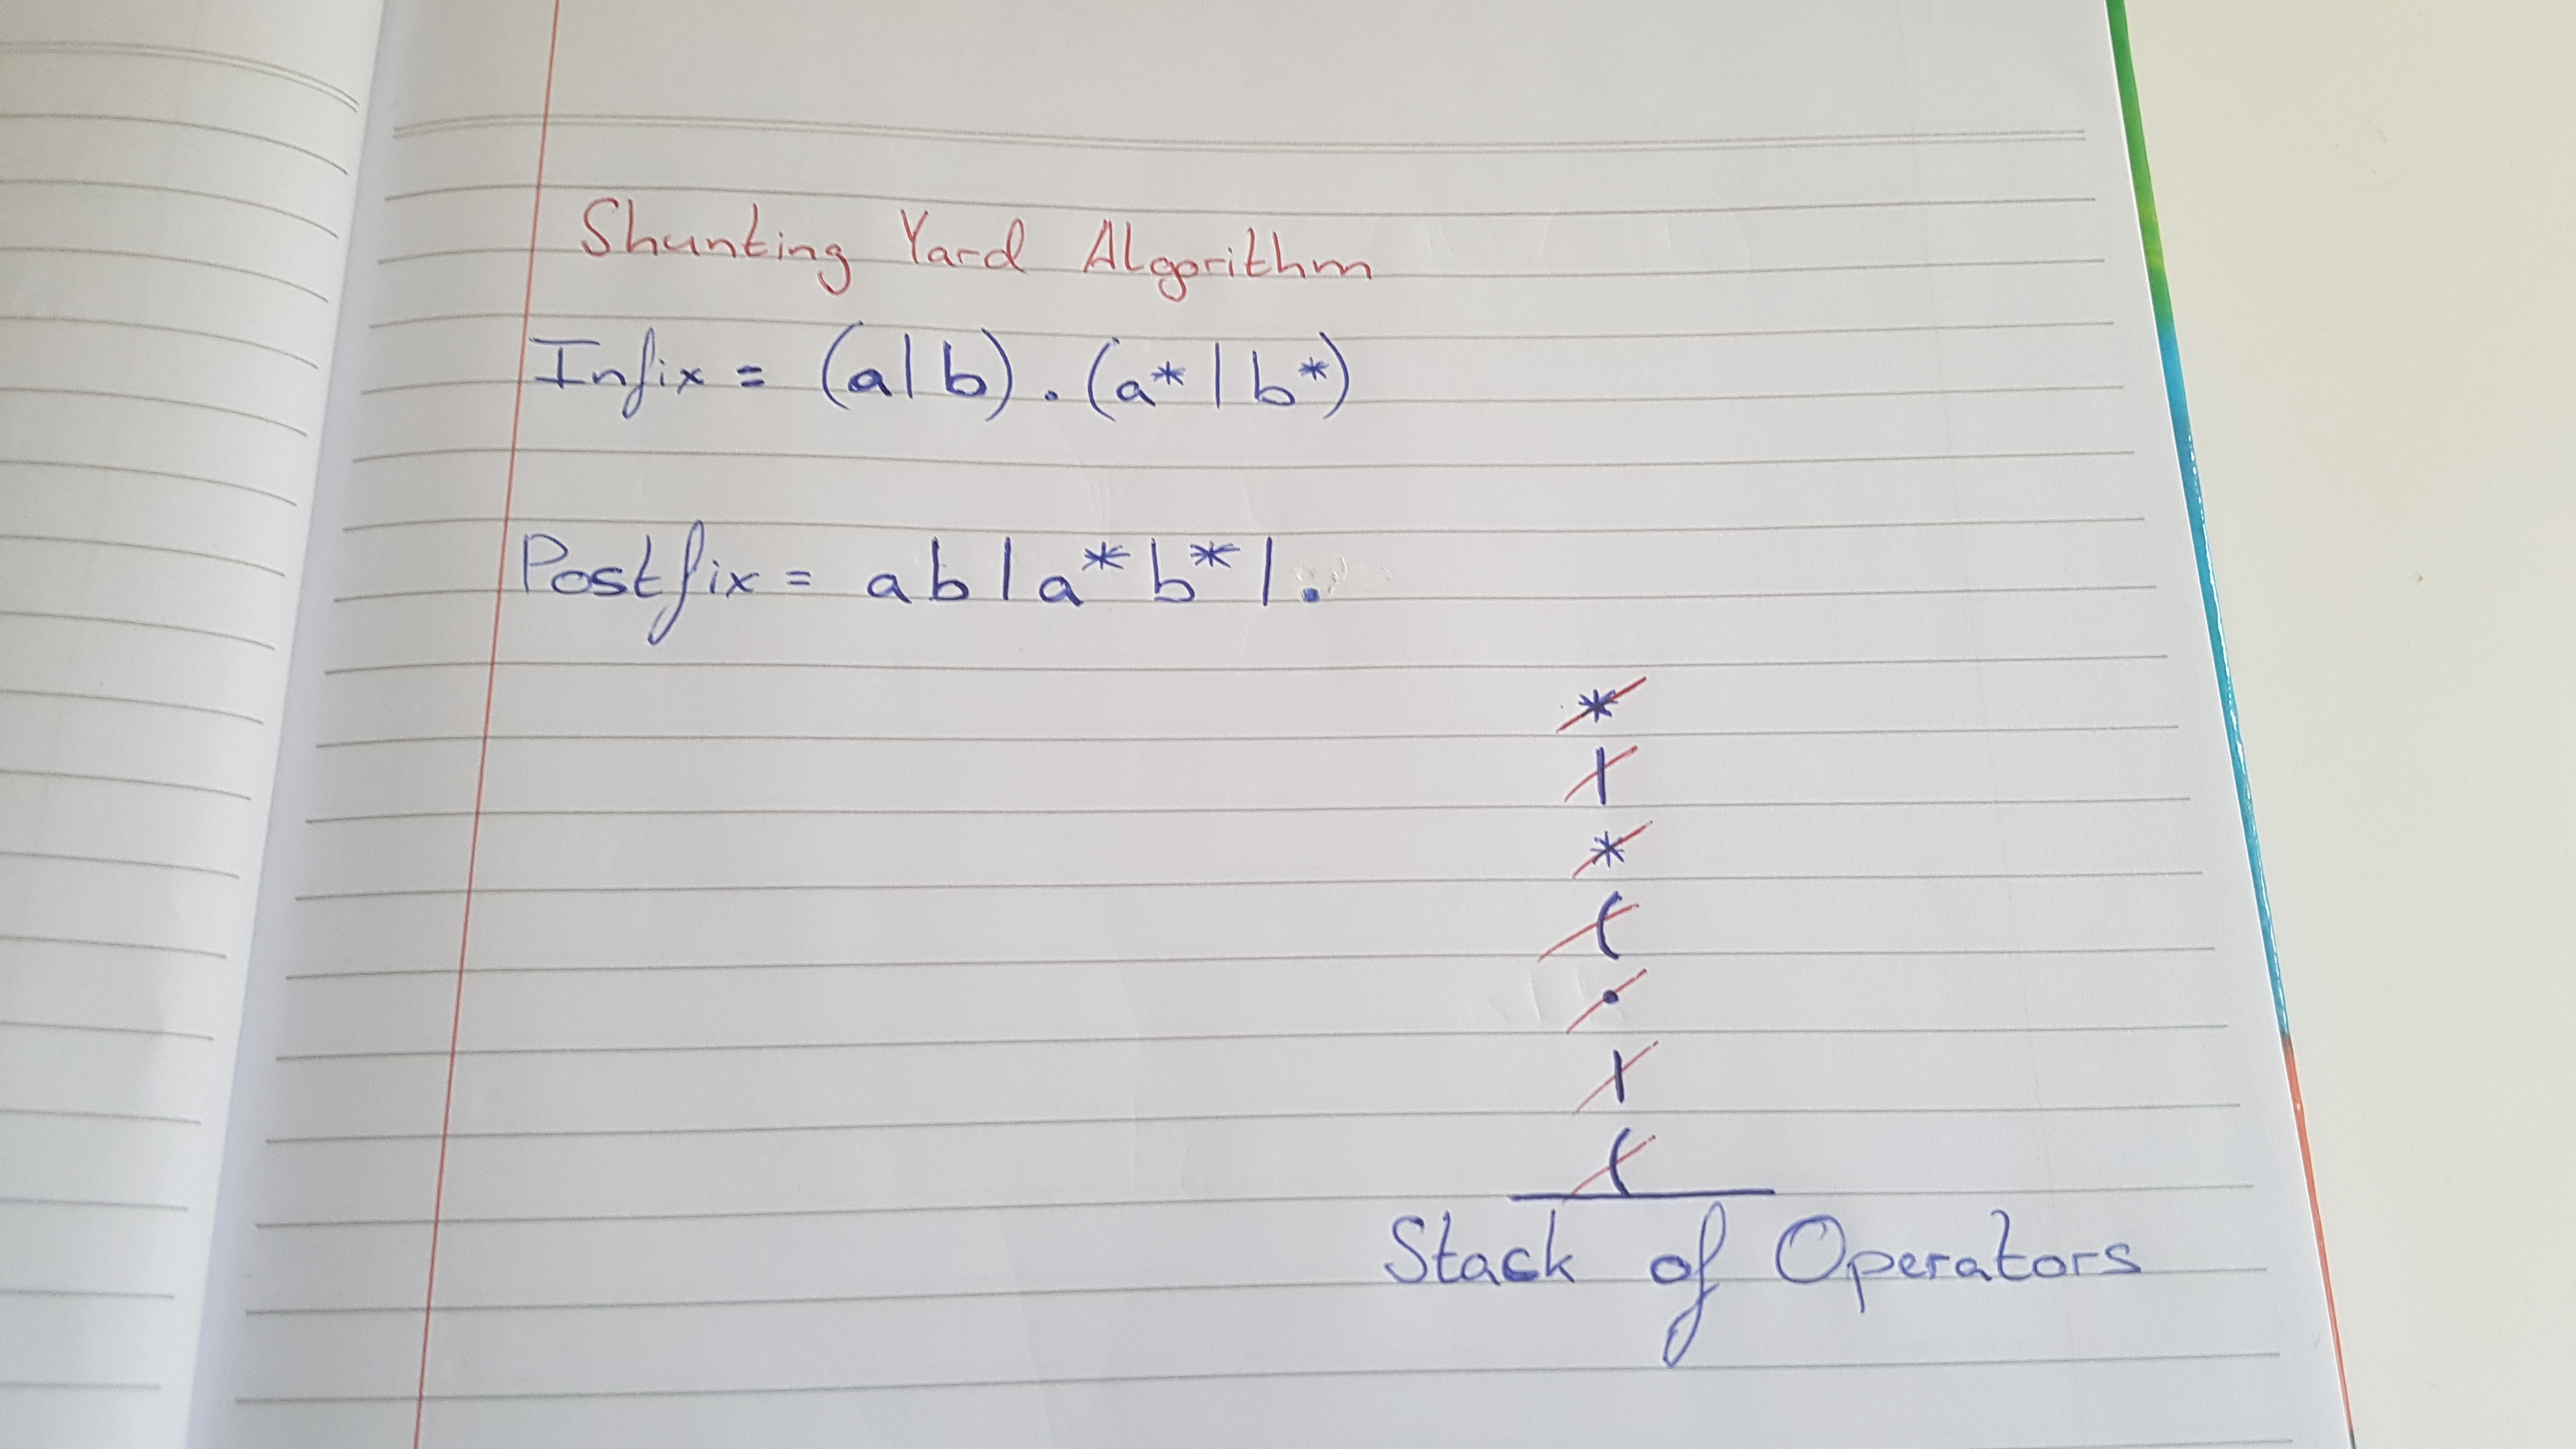 Shunting Yard Algorithm
Infix = (a|b).(a*|b*)
Postfix = ab|a*b*|.
*
|
*
(
.
|
(
Stack of Operators